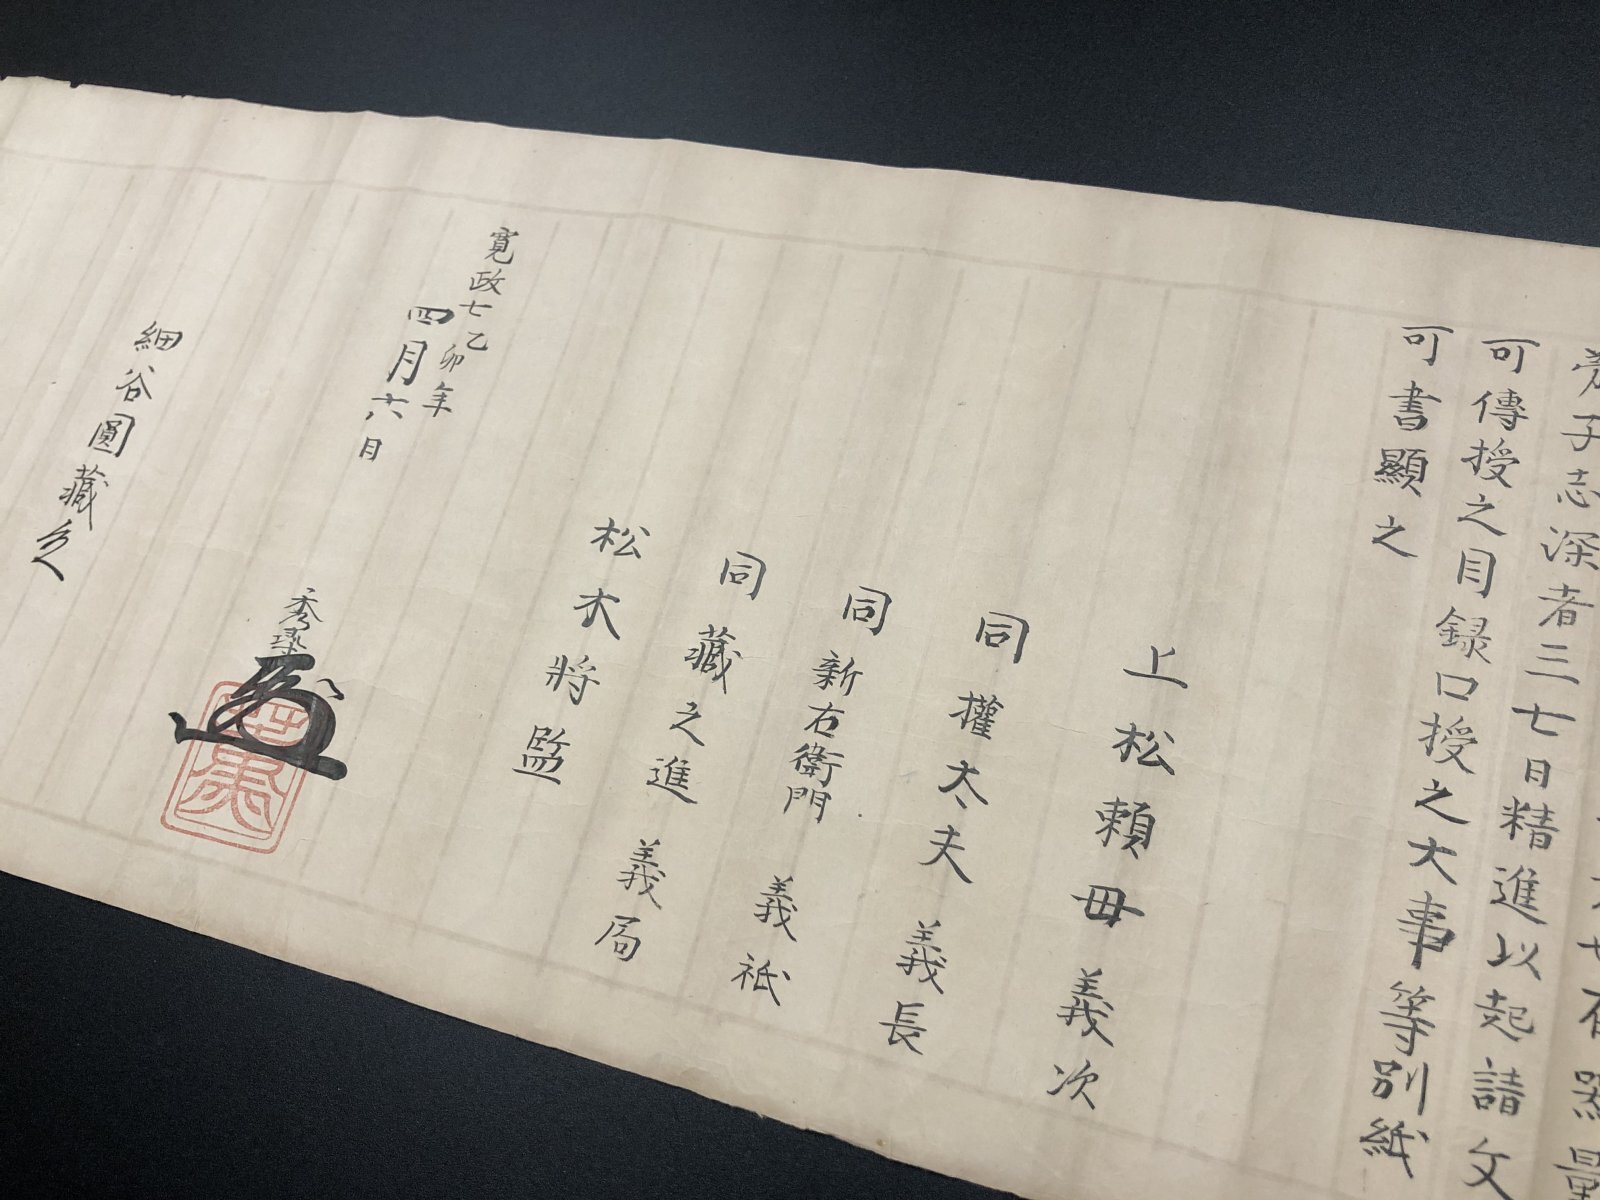 志深者三七日精進以起請文
可傳授之目録口授之大事等別紙
可書顯之
上松頼母義次
同權太夫義長
同新右衛門義祇
同藏之進義局
松木將監
寛政七乙卯年
四月六日
秀
細谷圓藏